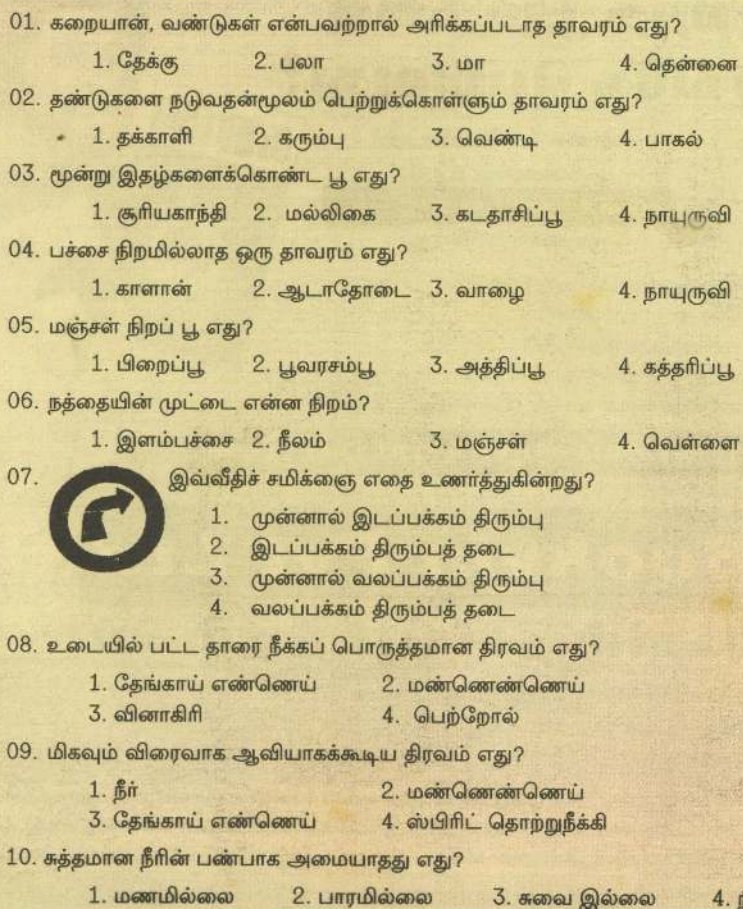 01. கறையான், வண்டுகள் என்பவற்றால் அரிக்கப்படாத தாவரம் எது?
1. தேக்கு 2. பலா 3. மா 4. தென்னை
02. தண்டுகளை நடுவதன்மூலம் பெற்றுக்கொள்ளும் தாவரம் எது?
1. தக்காளி 2. கரும்பு 3. வெண்டி 4. பாகல்
03. மூன்று இதழ்களைக்கொண்ட பூ எது?
1. சூரியகாந்தி 2. மல்லிகை 3. கடதாசிப்பூ 4. நாயுருவி
04. பச்சை நிறமில்லாத ஒரு தாவரம் எது?
1. காளான் 2. ஆடாதோடை 3. வாழை 4. நாயுருவி
05. மஞ்சள் நிறப் பூ எது?
1. பிறைப்பூ 2. பூவரசம்பூ 3. அத்திப்பூ 4. கத்தரிப்பூ
06. நத்தையின் முட்டை என்ன நிறம்?
1. இளம்பச்சை 2. நீலம் 3. மஞ்சள் 4. வெள்ளை
07. இவ்வீதிச் சமிக்ஞை எதை உணர்த்துகின்றது?
1. முன்னால் இடப்பக்கம் திரும்பு
2. இடப்பக்கம் திரும்பத் தடை
3. முன்னால் வலப்பக்கம் திரும்பு
4. வலப்பக்கம் திரும்பத் தடை
08. உடையில் பட்ட தாரை நீக்கப் பொருத்தமான திரவம் எது?
1. தேங்காய் எண்ணெய் 2. மண்ணெண்ணெய்
3. வினாகிரி 4. பெற்றோல்
09. மிகவும் விரைவாக ஆவியாகக்கூடிய திரவம் எது?
1. நீர் 2. மண்ணெண்ணெய்
3. தேங்காய் எண்ணெய் 4. ஸ்பிரிட் தொற்றுநீக்கி
10. சுத்தமான நீரின் பண்பாக அமையாதது எது?
1. மணமில்லை 2. பாரமில்லை 3. சுவை இல்லை 4.